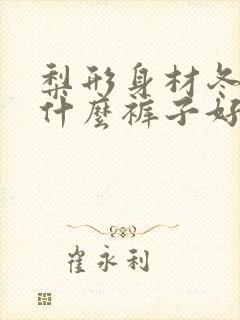 梨形身材冬
什麼裤子好
崔永利